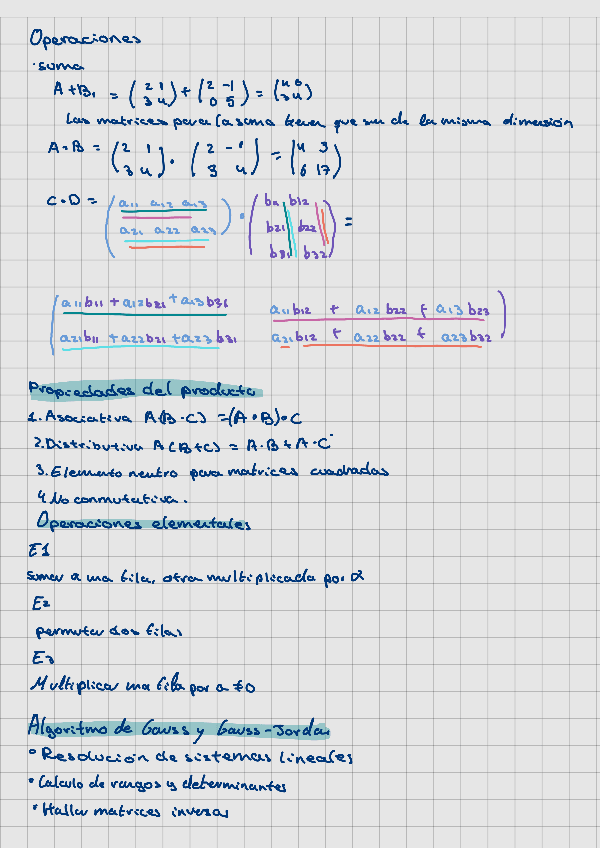 Operaciones
· suma
A+B, = (2 1 / 3 4) + (2 -1 / 0 5) = (4 0 / 3 4)
Las matrices para la suma tienen que ser de la misma dimensión
A·B = (2 1 / 3 4) · (2 -1 / 3 4) = (4 3 / 6 17)
C·D = (a11 a12 a13 / a21 a22 a23) · (b11 b12 / b21 b22 / b31 b32) =
a11b11 + a12b21 + a13b31 a11b12 + a12b22 + a13b23
a21b11 + a22b21 + a23b31 a21b12 + a22b22 + a23b32
Propiedades del producto
1. Asociativa A(B·C) = (A·B)·C
2. Distributiva A(B+C) = A·B+A·C
3. Elemento neutro para matrices cuadradas
4. No conmutativa.
Operaciones elementales
E1
sumar a una fila, otra multiplicada por α
E2
permutar dos filas
E3
Multiplicar una fila por a ≠ 0
Algoritmo de Gauss y Gauss-Jordan
° Resolución de sistemas lineales
• Calculo de rangos y determinantes
• Hallar matrices inversas